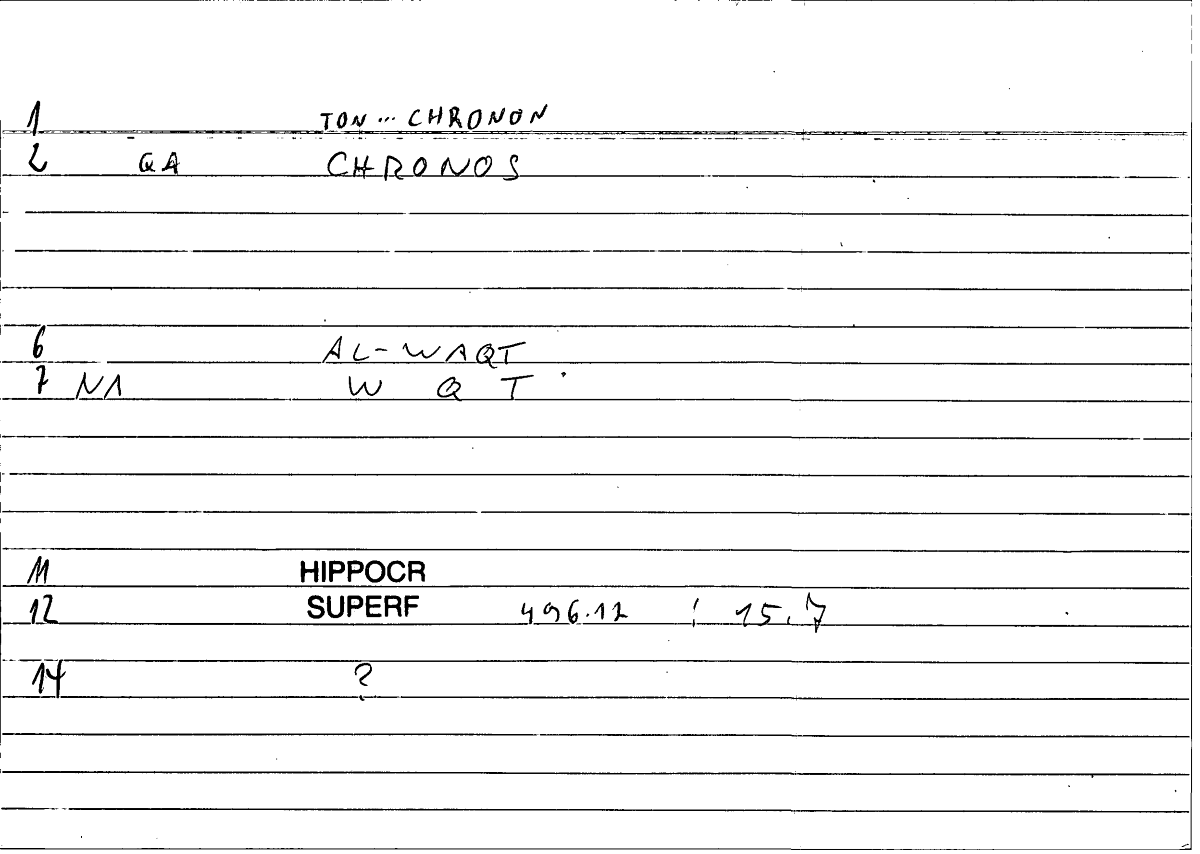 1 TON... CHRONON
2 QA CHRONOS
6 AL-WAQT
7 NA W Q T
11 HIPPOCR
12 SUPERF 496.12 ; 15.7
14 ?